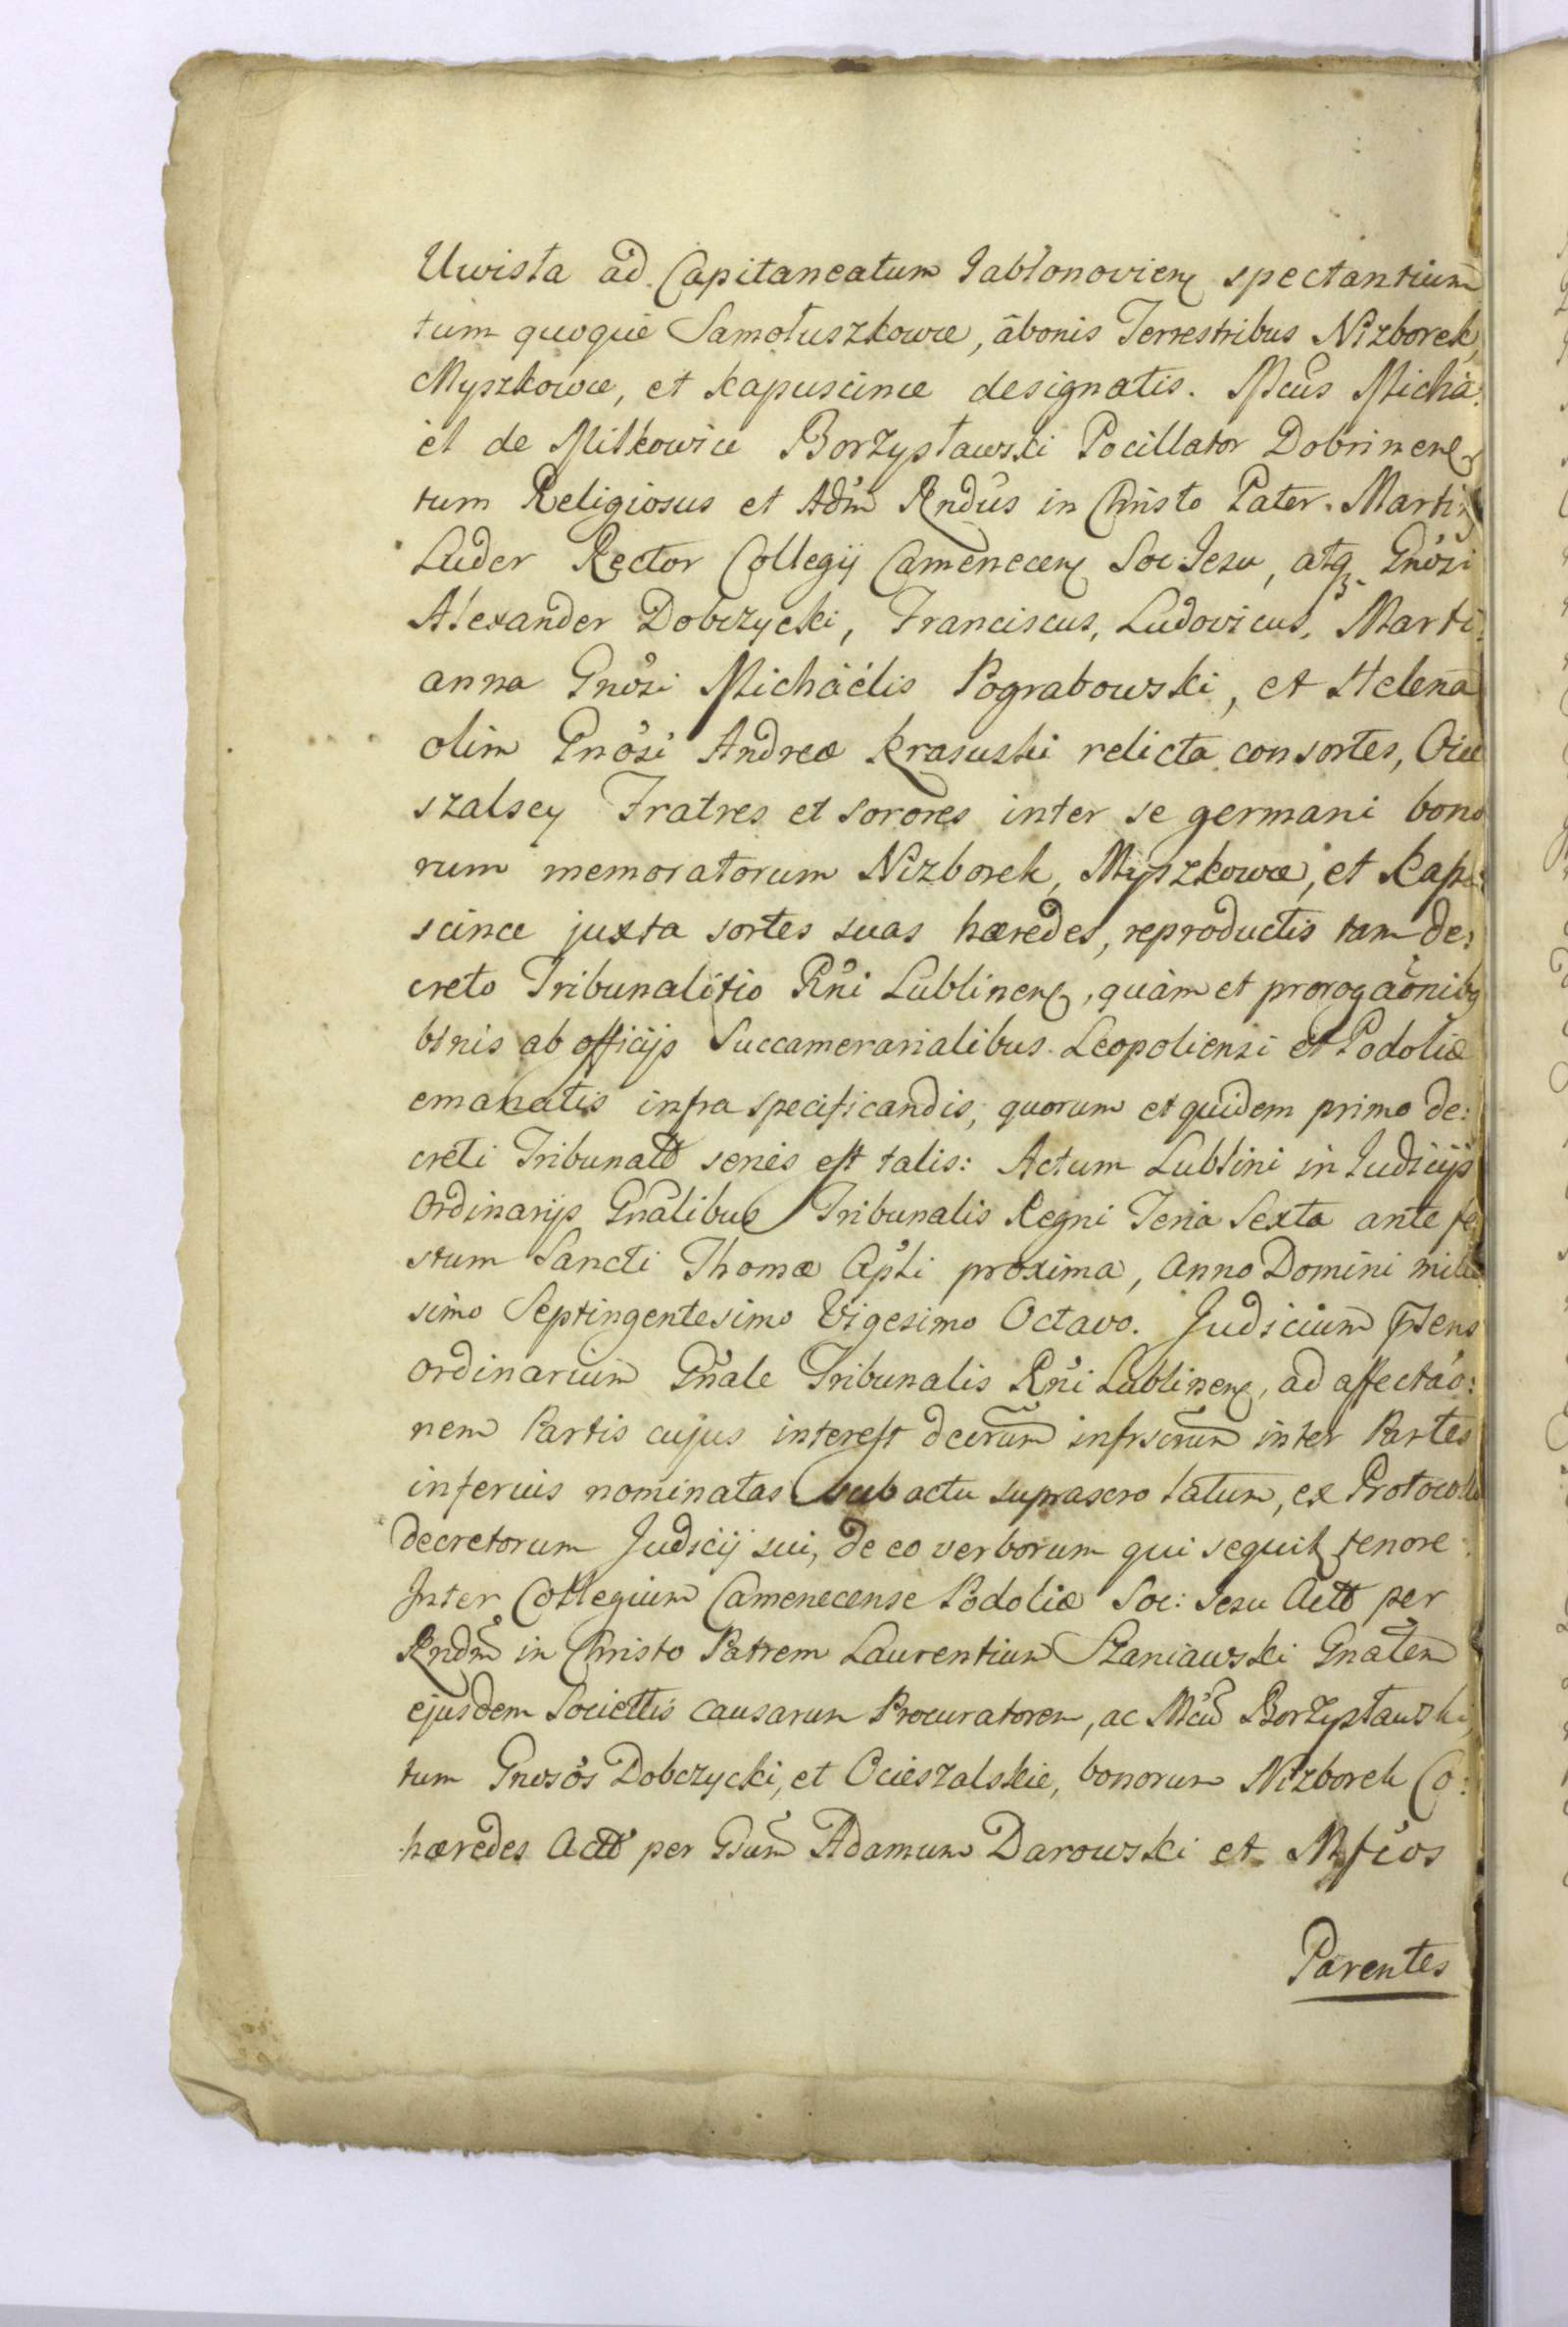 Uwista ad Capitaneatum Jabłonoviens spectantium
tum quoque Samołuszkowce, â bonis Terrestribus Nizborek,
Myszkowce, et Kapuscince designatis. Mcus Micha:
el de Miłkowice Borzysławski Pocillator Dobrinens
tum Religiosus et Adm Rndus in Christo Pater Martin
Luder Rector Collegij Camenecens Soc: Jesu, atq Gnosi
Alexander Dobczycki, Franciscus, Ludovicus, Marti:
anna Gnosi Michaelis Pograbowski, et Helena
olim Gnosi Andreæ Krasuski relicta consortes, Ocie
szalscy Fratres et sorores inter se germani bono
rum memoratorum Nizborek, Myszkowce, et Kapu:
scince juxta sortes suas hæredes, reproductis tam de:
creto Tribunalitio Rni Lublinens, quàm et prorogaonibq
binis ab officijs Succamerarialibus Leopoliensi et Podoliæ
emanatis infra specificandis, quorum et quidem primo de:
creti Tribunalt series est talis: Actum Lublini in Judicijs
Ordinarijs Gnalibus Tribunalis Regni Feria Sexta ante fe
stum Sancti Thomæ Apli proxima, Anno Domini mille
simo Septingentesimo Vigesimo Octavo. Judicium Prens
ordinarium Gnale Tribunalis Rni Lublinens, ad affectao:
nem Partis cujus interest decrum infrscrum inter Partes
inferius nominatas sub actu suprascro latum, ex Protocollo
decretorum Judicij sui, de eo verborum qui sequit tenore:
Inter Collegium Camenecense Podoliæ Soc: Jesu Actt per
Rndm in Christo Patrem Laurentium Szaniawski Gnalem
ejusdem Societtis causarum Procuratorem, ac Mcum Borzysławski
tum Gnosos Dobczycki, et Ocieszalskie, bonorum Nizborek Co:
hæredes Actt per Gsum Adamum Darowski et Mfcos
Parentes